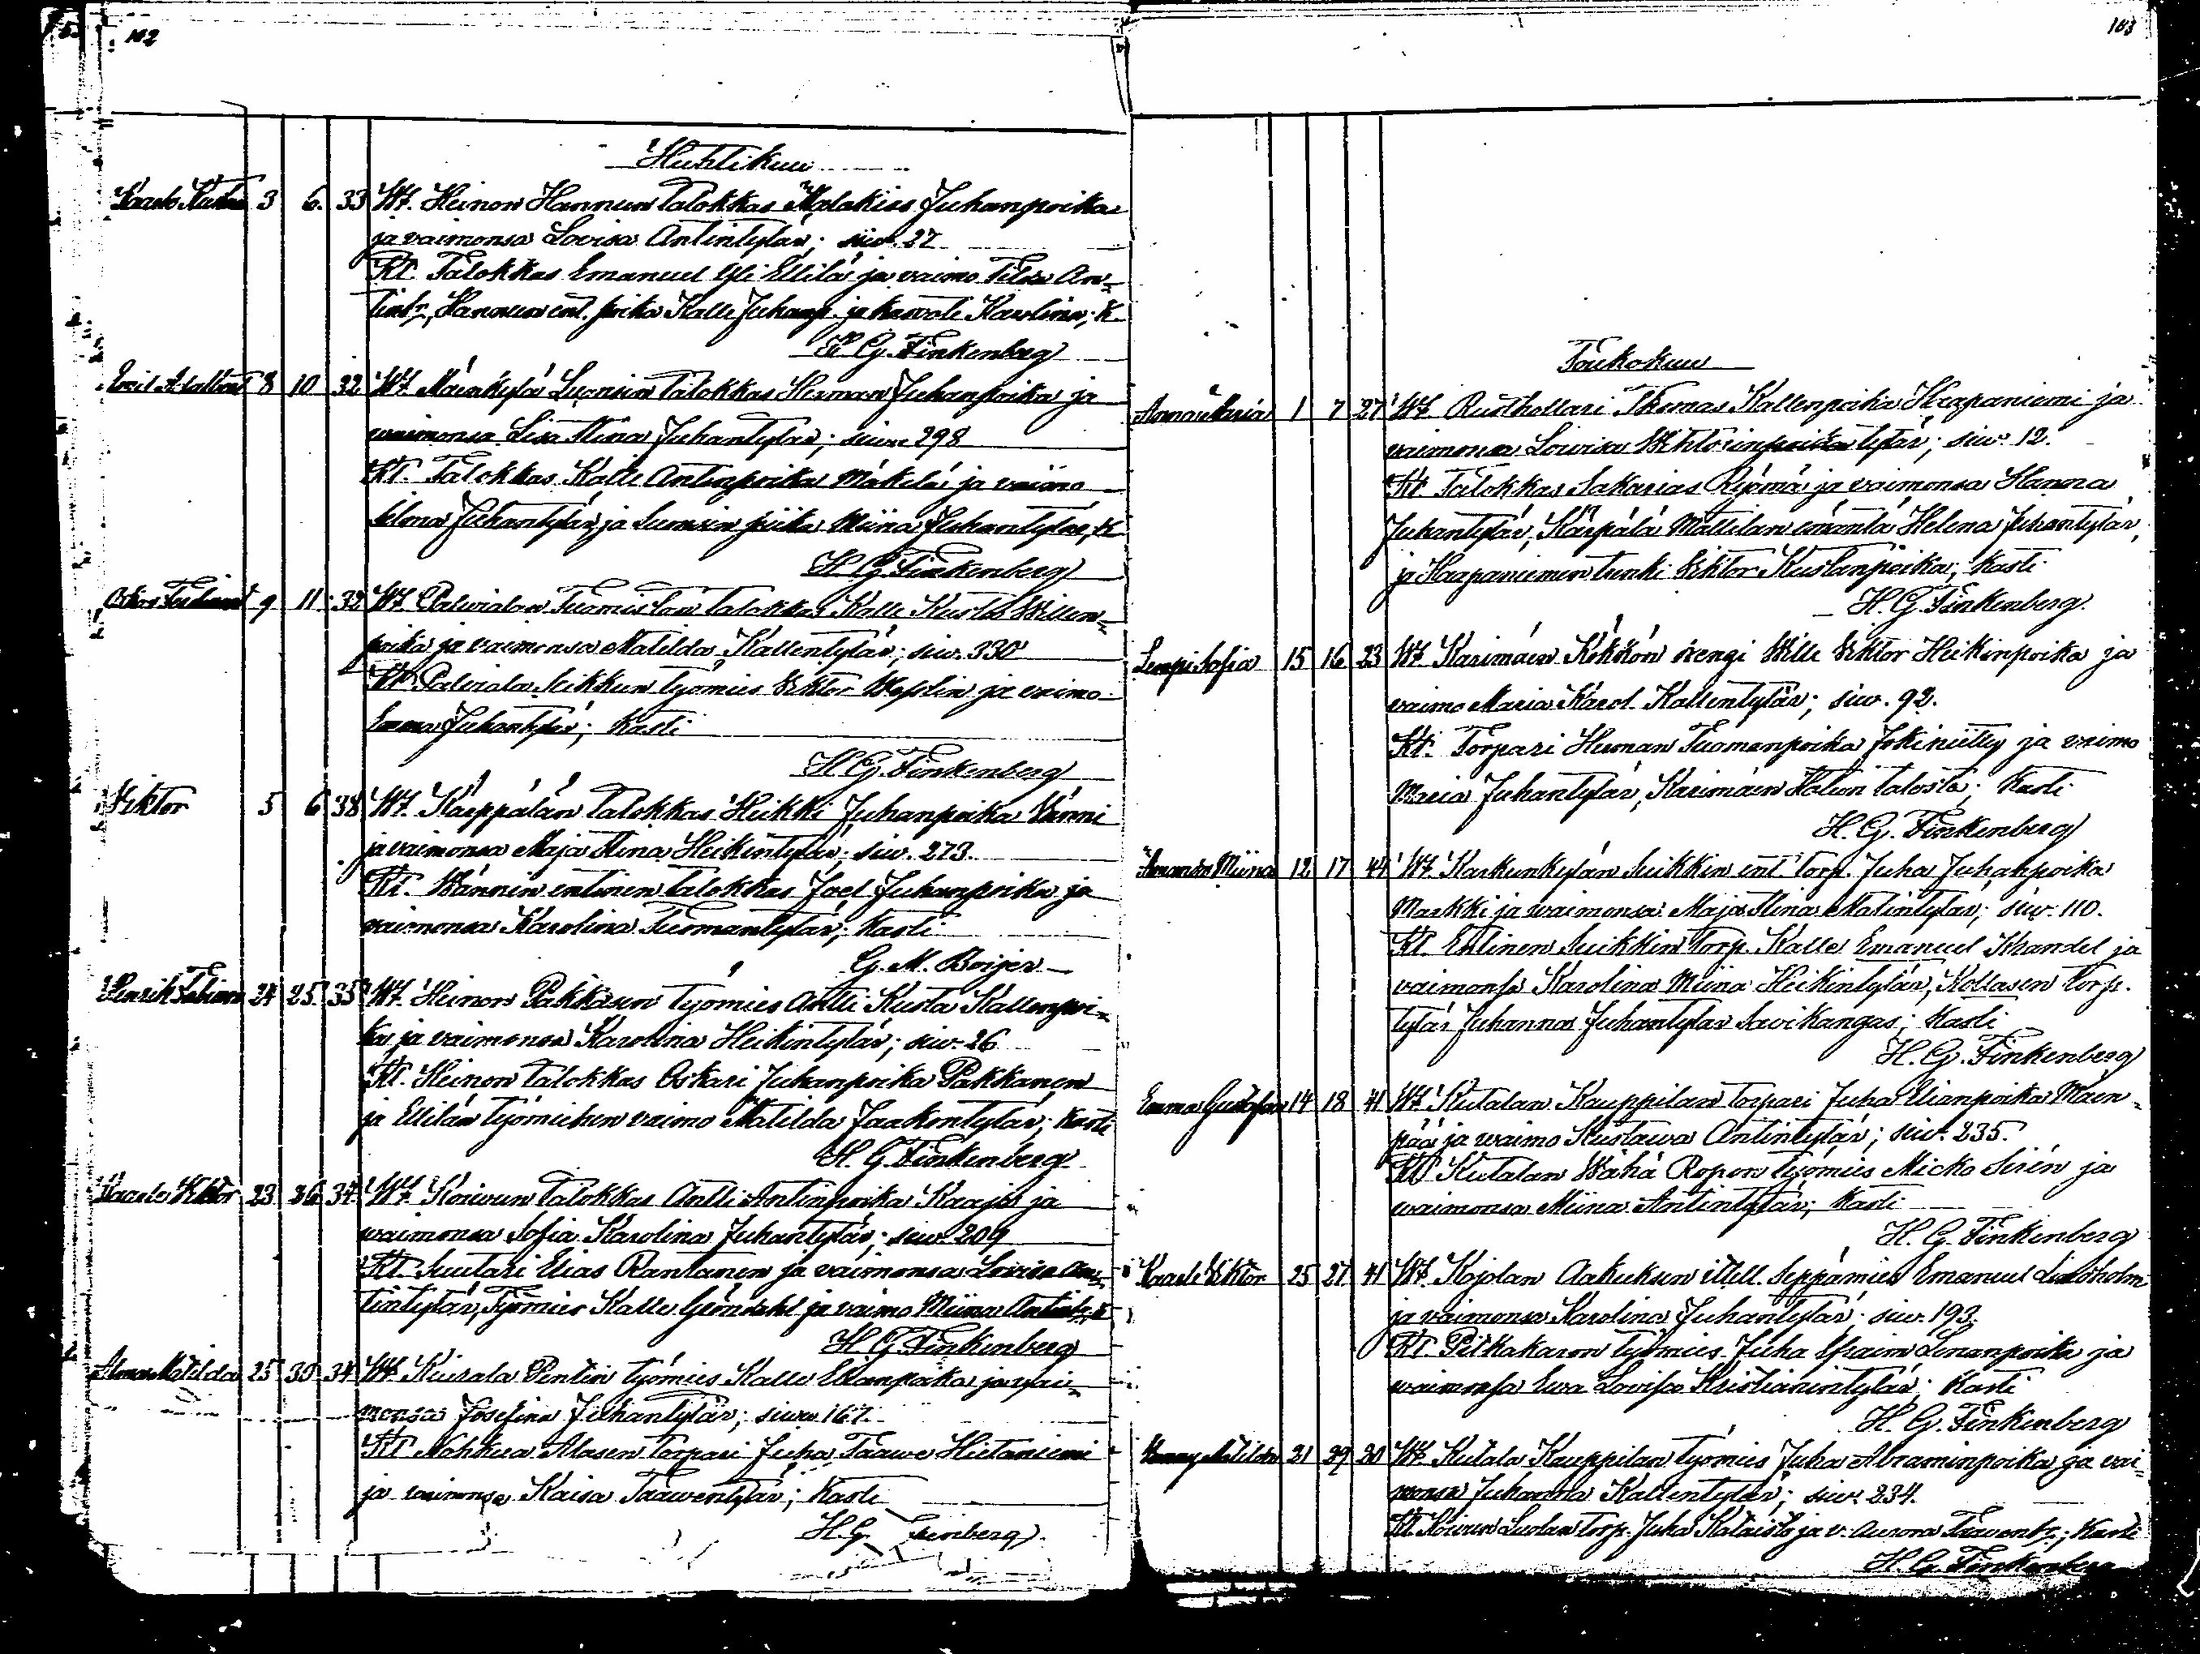 102
Huhtikuu
Kaarlo Kustaa 3 6. 33 Wt. Heinon Hannun talokkas Malakias Juhanpoika
ja vaimonsa Lovisa Antintytär; siw. 27
Kt. Talokkas Emanuel Yli Ellilä ja vaimo An-
tintr, Hannun ent. poika Kalle Juhanp. ja kasvati Karolina; K.
H. G. Finkenberg
8 10 32 Wt. talokkas Herman Juhanpoika ja
waimonsa Lisa Stina Juhantytär; siwu 298
Kt. Talokkas Kalle Antinpoika Mäkelä ja vaimo
Juhantytär, ja piika Miina Juhantytär, K
H. G. Finkenberg
9 11 32 Wt. talokkas Kalle Kusta Willen-
poika ja vaimonsa Matilda Kallentytär; siw. 330
Kt. työmies Viktor ja vaimo
Emma Juhantytär; Kasti
H. G. Finkenberg
Viktor 5 6 38 Wt. Käppälän talokkas Heikki Juhanpoika Wänni
ja vaimonsa Maja Stina Heikintytär; siw. 273.
Kt. Wännin entinen talokkas Joel Juhanpoika ja
vaimonsa Karolina Tuomantytär; Kasti
G. M. Boijer
Henrik Fabian 24 25. 35 Wt. Heinon Pakkasen työmies Antti Kusta Kallenpoi-
ka ja vaimonsa Karolina Heikintytär; siw. 26
Kt. Heinon talokkas Oskari Juhanpoika Pakkanen
ja Ellilän työmiehen vaimo Matilda Jaakontytär; Kasti
H. G. Finkenberg
Kaarlo Viktor 23 26 34 Wt. Koivun talokkas Antti Antinpoika Kaaja ja
waimonsa Sofia Karolina Juhantytär; siw. 209
Kt. Suutari Elias Rantanen ja vaimonsa Lovisa An-
tintytär, Työmies Kalle ja vaimo Miina
H. G. Finkenberg
Alma Matilda 25 30 34 Wt. Kiurala Pentin työmies Kalle Elianpoika ja vai-
monsa Josefina Juhantytär; siwu 167.
Kt. Nohkua Alasen torpari Juha Taawe Hietaniemi
ja vaimonsa Kaisa Taawentytär; Kasti
H. G.
103
Toukokuu
Anna Maria 1 7 27 Wt. Rusthollari Thomas Kallenpoika Haapaniemi ja
vaimonsa Lowisa tytär; siw. 12.
Kt. Talokkas Sakarias Rijömä ja vaimonsa Hanna
Juhantytär, Kärpälä Mattilan emäntä Helena Juhantytär,
ja Haapaniemen renki Viktor Kustanpoika; Kasti
H. G. Finkenberg.
Lempi Sofia 15 16 23 Wt. Karimäen Kökkön rengi Wille Viktor Heikinpoika ja
vaimo Maria Karol. Kallentytär; siw. 92.
Kt. Torpari Herman Tuomanpoika Jokiniitty ja vaimo
Maria Juhantytär, Karimäen talosta; Kasti
H. G. Finkenberg
Amanda Miina 12 17 44 Wt. Karkunkylän Suikkin ent. torp. Juha Juhanpoika
Markki ja vaimonsa Maja Stina Matintytär; siw. 110.
Kt. Entinen Suikkin torp. Kalle Emanuel ja
vaimonsa Karolina Miina Heikintytär, torp.
tytär Juhanna Juhantytär Savikangas; Kasti
H. G. Finkenberg
Emma Gustafva 14 18 41 Wt. Kutalan Kauppilan torpari Juha Elianpoika Mäen-
pää ja vaimo Kustawa Antintytär; siw. 235.
Kt. Kutalan Wähä Ropon työmies Micko Sirén ja
waimonsa Miina Antintytär; Kasti
H. G. Finkenberg
Kaarle Viktor 25 27 41 Wt. Kojolan Aakuksen itell. Seppämies Emanuel
ja vaimonsa Karolina Juhantytär; siw. 193.
Kt. työmies Juha Efraim ja
waimonsa Ewa Lovisa Kristianintytär; Kasti
H. G. Finkenberg
Matilda 21 29 20 Wt. Kutala Kauppilan työmies Juha Abraminpoika ja vai-
monsa Juhanna Kallentytär; siw. 234.
Kt. Koivun torp. Juha ja v. Aurora; Kasti
H. G. Finkenberg